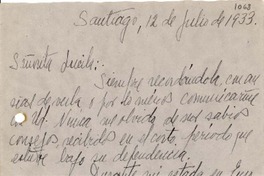 1063
Santiago, 12 de Julio de 1933.
Señorita Lucila:
Siempre recordándola, con an
sias de verla o por lo menos comunicarme
con Ud. Nunca me olvido de sus sabios
consejos recibidos en el corto periodo que
estuve bajo su dependencia.
mi estada en